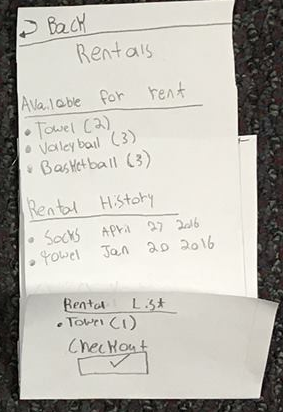 Back
Rentals
Available for rent
• Towel (2)
• Valleyball (3)
• Basketball (3)
Rental History
• Socks April 27 2016
• Towel Jan 20 2016
Rental List
• Towel (1)
Checkout